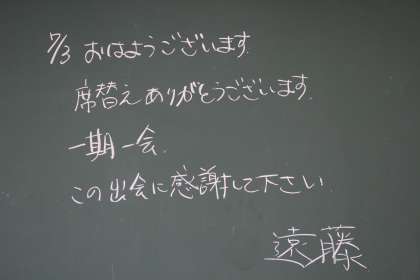 7/3 おはようございます.
席替えありがとうございます.
一期一会.
この出会に感謝して下さい.
遠藤